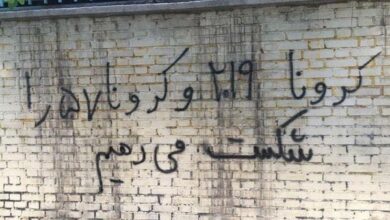 کرونا ۲۰۱۹ و کرونا ۵۷ را
شکست می دهیم